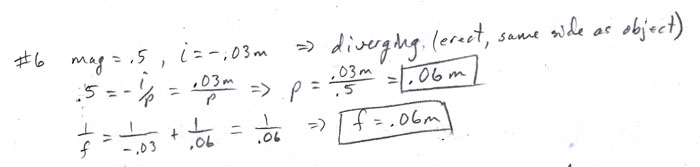 #6 mag = .5 , i = -.03m => diverging. (erect, same side as object)
.5 = -i/p = .03m/p => p = .03m/.5 = .06m
1/f = 1/-.03 + 1/.06 = 1/.06 => f = .06m